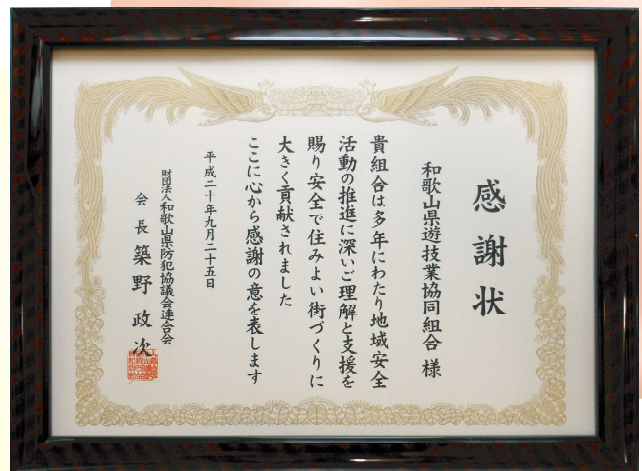 感謝状
和歌山県遊技業協同組合 様
貴組合は多年にわたり地域安全
活動の推進に深いご理解と支援を
賜り安全で住みよい街づくりに
大きく貢献されました
ここに心から感謝の意を表します
平成二十年九月二十五日
財団法人和歌山県防犯協議会連合会
会長 築野政次